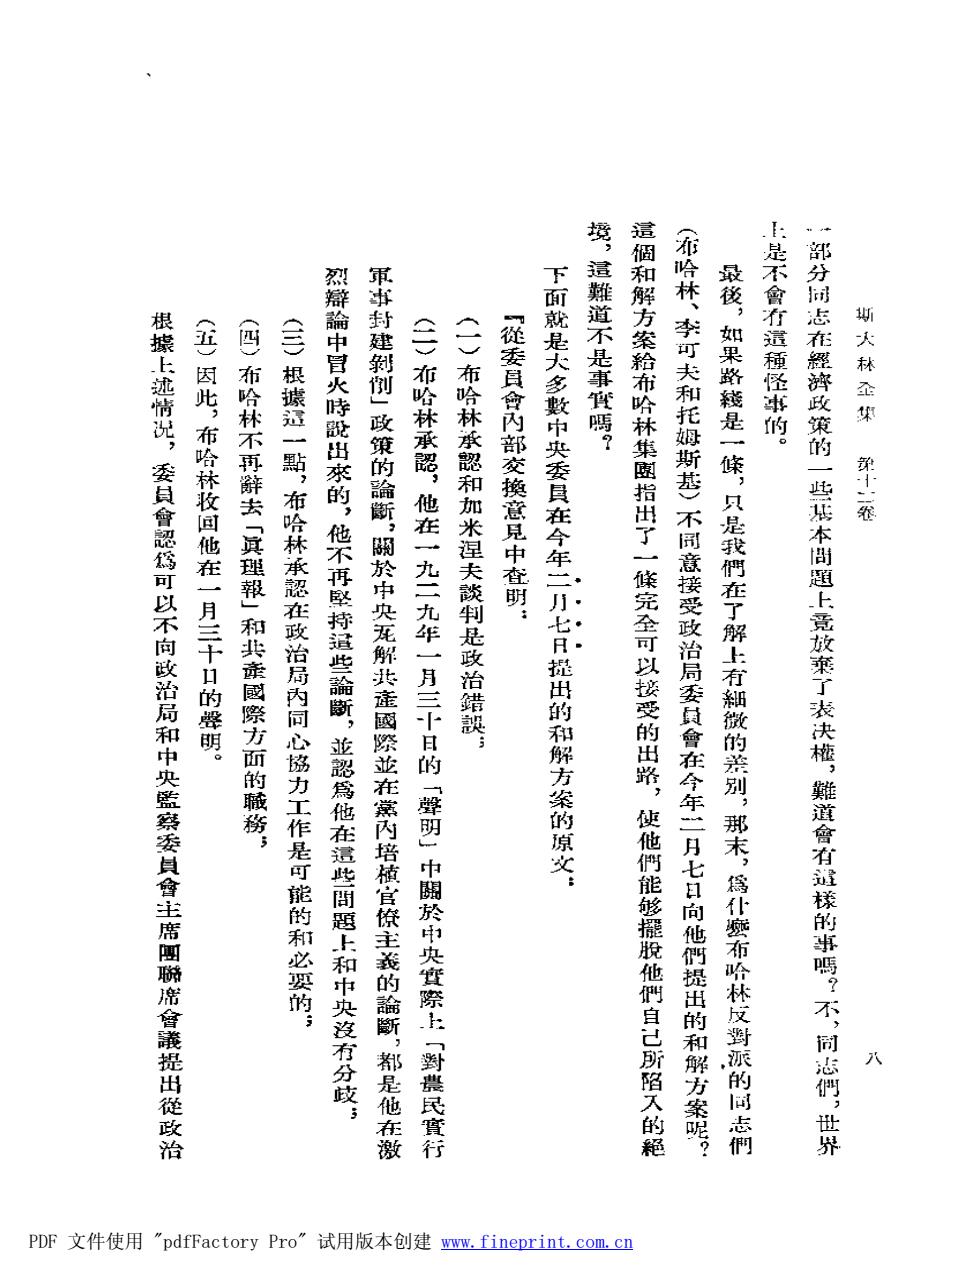 斯大林全集　第十二卷
八
一部分同志在經濟政策的一些基本問題上竟放棄了表决權，難道會有這樣的事嗎？不，同志們，世界
上是不會有這種怪事的。
最後，如果路綫是一條，只是我們在了解上有細微的差別，那末，爲什麼布哈林反對派的同志們
（布哈林、李可夫和托姆斯基）不同意接受政治局委員會在今年二月七日向他們提出的和解方案呢？
這個和解方案給布哈林集團指出了一條完全可以接受的出路，使他們能够擺脫他們自己所陷入的絕
境，這難道不是事實嗎？
下面就是大多數中央委員在今年二月七日提出的和解方案的原文：
『從委員會內部交換意見中查明：
（一）布哈林承認和加米湼夫談判是政治錯誤；
（二）布哈林承認，他在一九二九年一月三十日的「聲明」中關於中央實際上「對農民實行
軍事封建剝削」政策的論斷，關於中央瓦解共產國際並在黨內培植官僚主義的論斷，都是他在激
烈辯論中冒火時說出來的，他不再堅持這些論斷，並認爲他在這些問題上和中央沒有分歧；
（三）根據這一點，布哈林承認在政治局內同心協力工作是可能的和必要的；
（四）布哈林不再辭去「眞理報」和共產國際方面的職務；
（五）因此，布哈林收回他在一月三十日的聲明。
根據上述情况，委員會認爲可以不向政治局和中央監察委員會主席團聯席會議提出從政治
PDF 文件使用 "pdfFactory Pro" 试用版本创建 www.fineprint.com.cn